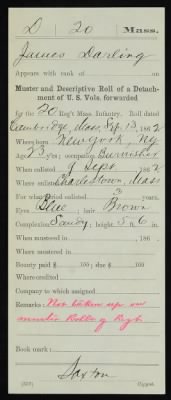 D 20 Mass.
James Darling
Appears with rank of
Muster and Descriptive Roll of a Detach-
ment of U. S. Vols. forwarded
for the 20 Reg't Mass. Infantry. Roll dated
Cambridge, Mass Sep. 13, 1862
Where born New York, N.Y.
Age 23 y'rs; occupation Burnisher
When enlisted 9 Sept., 1862
Where enlisted Charlestown, Mass
For what period enlisted 3 years.
Eyes Blue; hair Brown
Complexion Sandy; height 5 ft. 6 in.
When mustered in , 186
Where mustered in
Bounty paid $ 100; due $ 100
Where credited
Company to which assigned
Remarks: Not taken up on
muster Rolls of Regt
Book mark:
Saxton
Copyist.